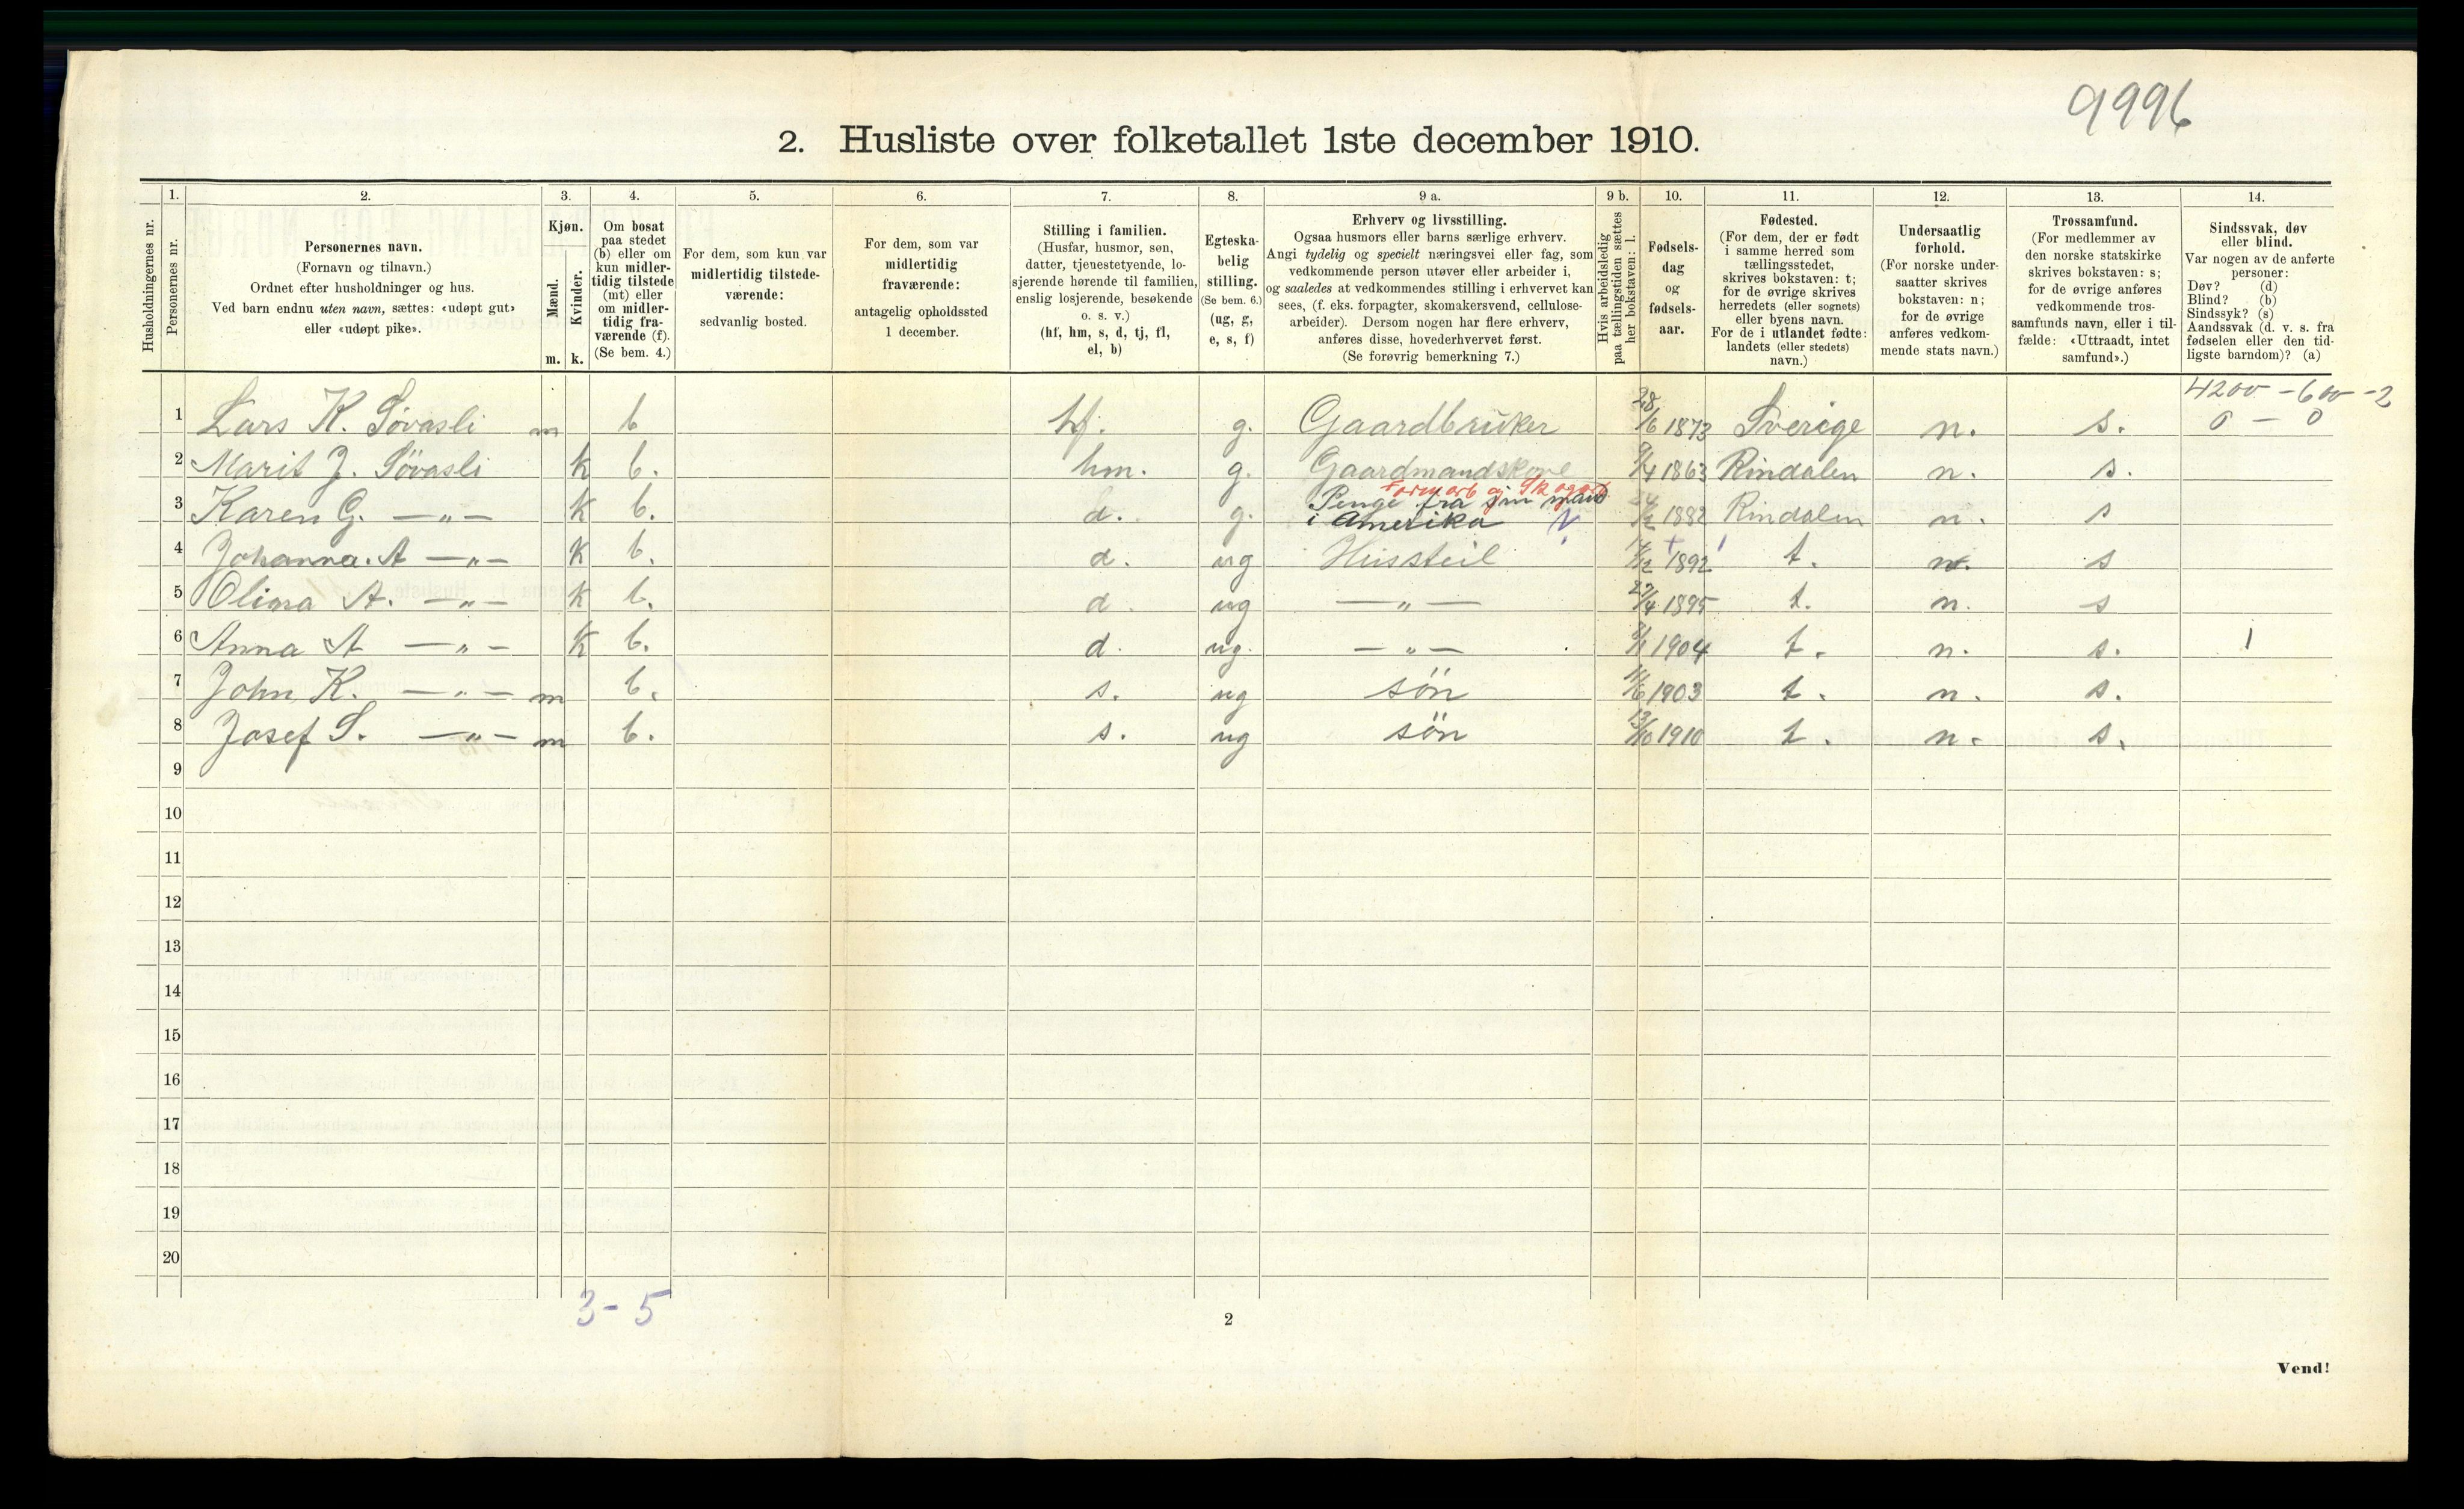 9996
2. Husliste over folketallet 1ste december 1910.
Husholdningernes nr.
1.
Personernes nr.
2.
Personernes navn.
(Fornavn og tilnavn.)
Ordnet efter husholdninger og hus.
Ved barn endnu uten navn, sættes: «udøpt gut»
eller «udøpt pike».
3.
Kjøn.
Mænd.
Kvinder.
m. k.
4.
Om bosat
paa stedet
(b) eller om
kun midler-
tidig tilstede
(mt) eller
om midler-
tidig fra-
værende (f).
(Se bem. 4.)
5.
For dem, som kun var
midlertidig tilstede-
værende:
sedvanlig bosted.
6.
For dem, som var
midlertidig
fraværende:
antagelig opholdssted
1 december.
7.
Stilling i familien.
(Husfar, husmor, søn,
datter, tjenestetyende, lo-
sjerende hørende til familien,
enslig losjerende, besøkende
o. s. v.)
(hf, hm, s, d, tj, fl,
el, b)
8.
Egteska-
belig
stilling.
(Se bem. 6.)
(ug, g,
e, s, f)
9 a.
Erhverv og livsstilling.
Ogsaa husmors eller barns særlige erhverv.
Angi tydelig og specielt næringsvei eller fag, som
vedkommende person utøver eller arbeider i,
og saaledes at vedkommendes stilling i erhvervet kan
sees, (f. eks. forpagter, skomakersvend, cellulose-
arbeider). Dersom nogen har flere erhverv,
anføres disse, hovederhvervet først.
(Se forøvrig bemerkning 7.)
9 b.
Hvis arbeidsledig
paa tællingstiden sættes
her bokstaven: l.
10.
Fødsels-
dag
og
fødsels-
aar.
11.
Fødested.
(For dem, der er født
i samme herred som
tællingsstedet,
skrives bokstaven: t;
for de øvrige skrives
herredets (eller sognets)
eller byens navn.
For de i utlandet fødte:
landets (eller stedets)
navn.)
12.
Undersaatlig
forhold.
(For norske under-
saatter skrives
bokstaven: n;
for de øvrige
anføres vedkom-
mende stats navn.)
13.
Trossamfund.
(For medlemmer av
den norske statskirke
skrives bokstaven: s;
for de øvrige anføres
vedkommende tros-
samfunds navn, eller i til-
fælde: «Uttraadt, intet
samfund».)
14.
Sindssvak, døv
eller blind.
Var nogen av de anførte
personer:
Døv? (d)
Blind? (b)
Sindssyk? (s)
Aandssvak (d. v. s. fra
fødselen eller den tid-
ligste barndom)? (a)
4200 - 600 - 2
1 Lars K. Søvasli m b hf. g. Gaardbruker 28/6 1873 Sverige n. s. 0 - 0
2 Marit J. Søvasli k b. hm. g. Gaardmandskone 9/4 1863 Rindalen n. s.
Farmarb og Skogarb.
Penge fra sin mand
3 Karen G. — „ — k b. d. g. i Amerika 1882 Rindalen n. s
4 Johanna. A — „ — k b. d. ug Hussteil 1892 t. n. s
5 Olina A. — „ — k b. d. ug — „ — 27/4 1895 t. n. s
6 Anna A — „ — k b. d. ug. — „ — 1904 t. n. s. 1
7 John K. — „ — m b. s. ug søn 11/6 1903 t. n. s.
8 Josef S. — „ — m b. s. ug søn 13/10 1910 t. n. s.
9
10
11
12
13
14
15
16
17
18
19
20
3 - 5
2
Vend!